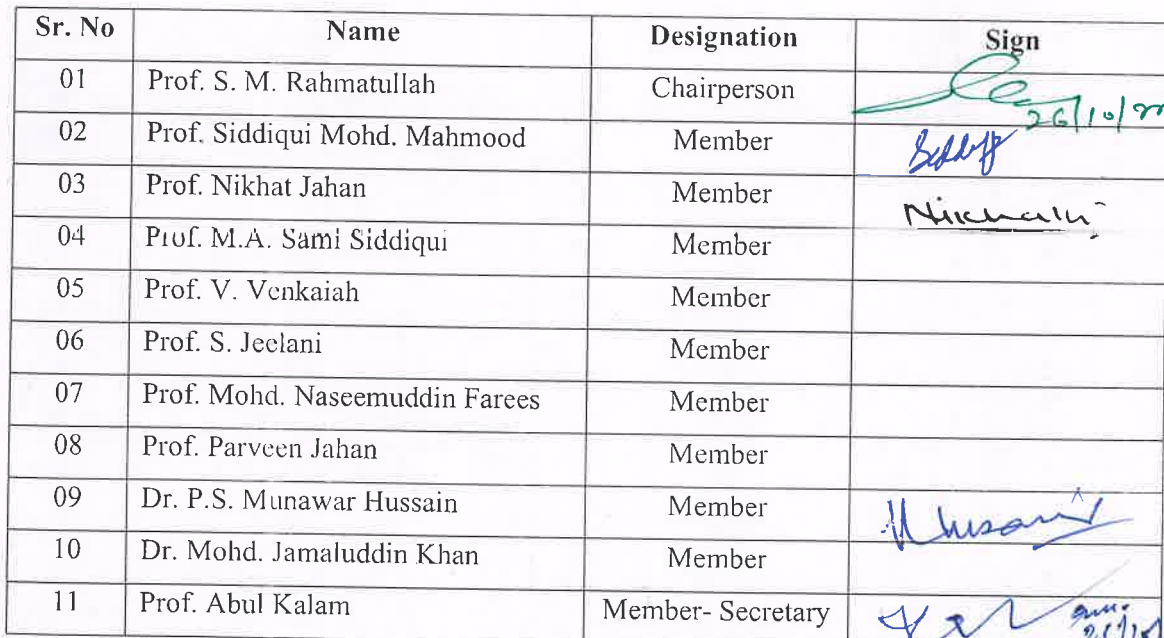 Sr. No Name Designation Sign
01 Prof. S. M. Rahmatullah Chairperson
26/10/22
02 Prof. Siddiqui Mohd. Mahmood Member
03 Prof. Nikhat Jahan Member
04 Prof. M.A. Sami Siddiqui Member
05 Prof. V. Venkaiah Member
06 Prof. S. Jeelani Member
07 Prof. Mohd. Naseemuddin Farees Member
08 Prof. Parveen Jahan Member
09 Dr. P.S. Munawar Hussain Member
10 Dr. Mohd. Jamaluddin Khan Member
11 Prof. Abul Kalam Member- Secretary